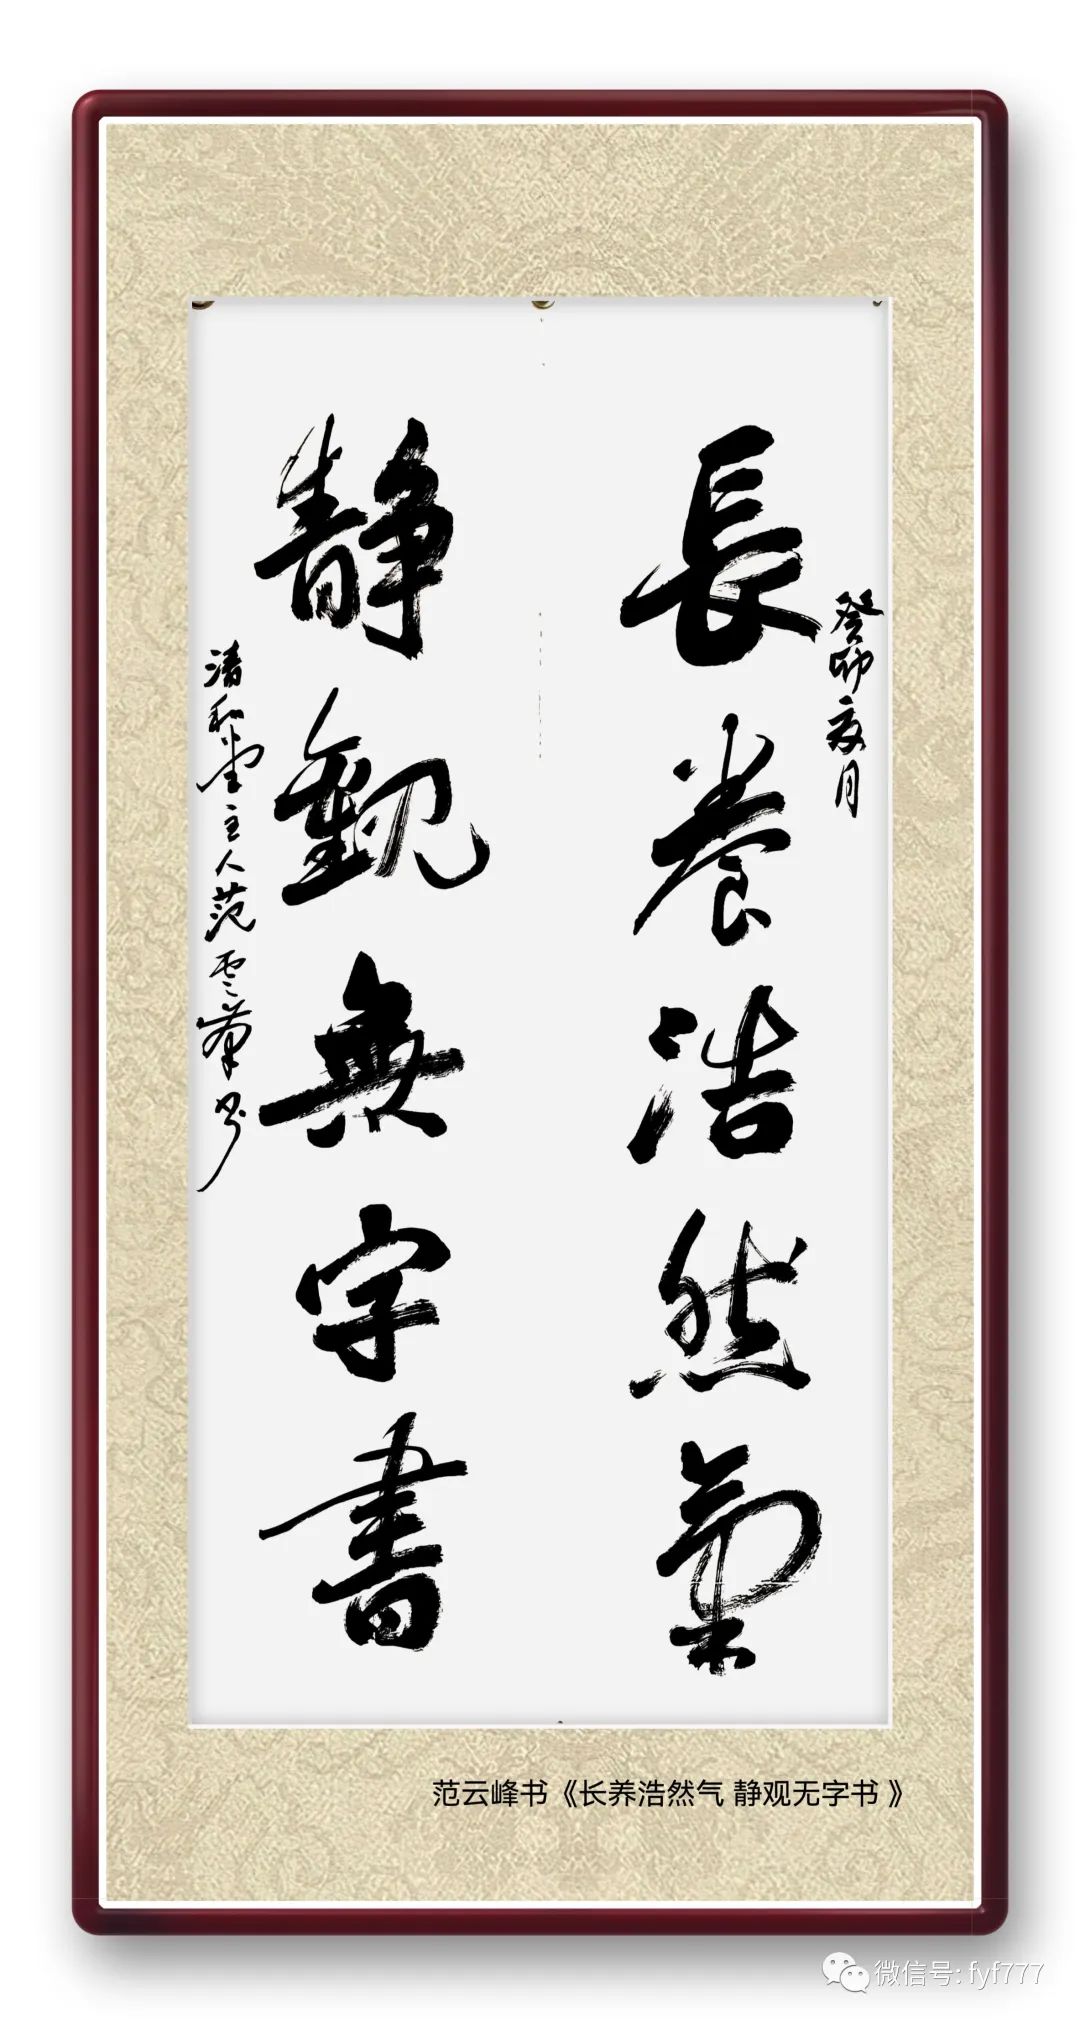 癸卯亥月
長養浩然氣
靜觀無字書
清和堂主人范雲峯书
范云峰书《长养浩然气 静观无字书 》
微信号: fyf777